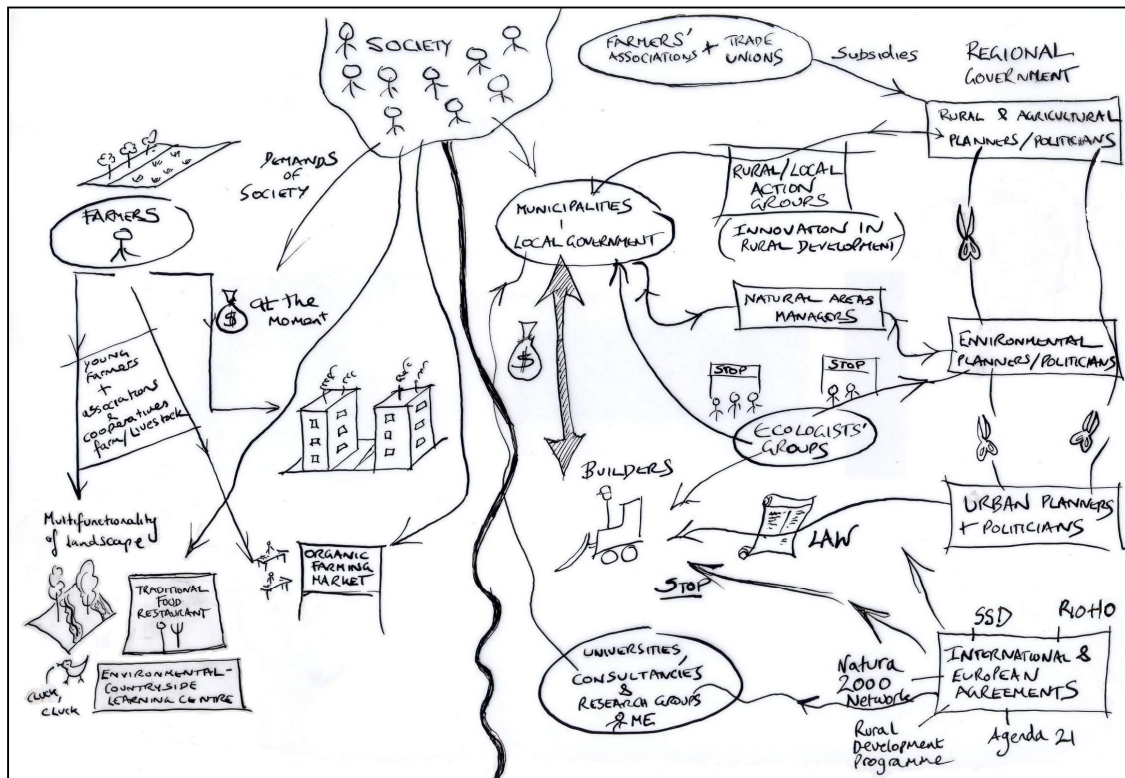 SOCIETY
FARMERS'
ASSOCIATIONS + TRADE
UNIONS
Subsidies
REGIONAL
GOVERNMENT
RURAL & AGRICULTURAL
PLANNERS/POLITICIANS
DEMANDS
OF
SOCIETY
FARMERS
MUNICIPALITIES
LOCAL GOVERNMENT
RURAL/LOCAL
ACTION
GROUPS
(INNOVATION IN
RURAL DEVELOPMENT)
$
at the
moment
$
NATURAL AREAS
MANAGERS
ENVIRONMENTAL
PLANNERS/POLITICIANS
young
farmers
+
associations
&
cooperatives
farm/livestock
STOP
STOP
ECOLOGISTS'
GROUPS
BUILDERS
URBAN PLANNERS
+ POLITICIANS
LAW
STOP
Multifunctionality
of landscape
TRADITIONAL
FOOD
RESTAURANT
ORGANIC
FARMING
MARKET
CLUCK,
CLUCK
ENVIRONMENTAL-
COUNTRYSIDE
LEARNING CENTRE
UNIVERSITIES,
CONSULTANCIES
&
RESEARCH GROUPS
ME
SSD
Natura
2000
Network
INTERNATIONAL &
EUROPEAN
AGREEMENTS
Rural
Development
Programme
Agenda 21